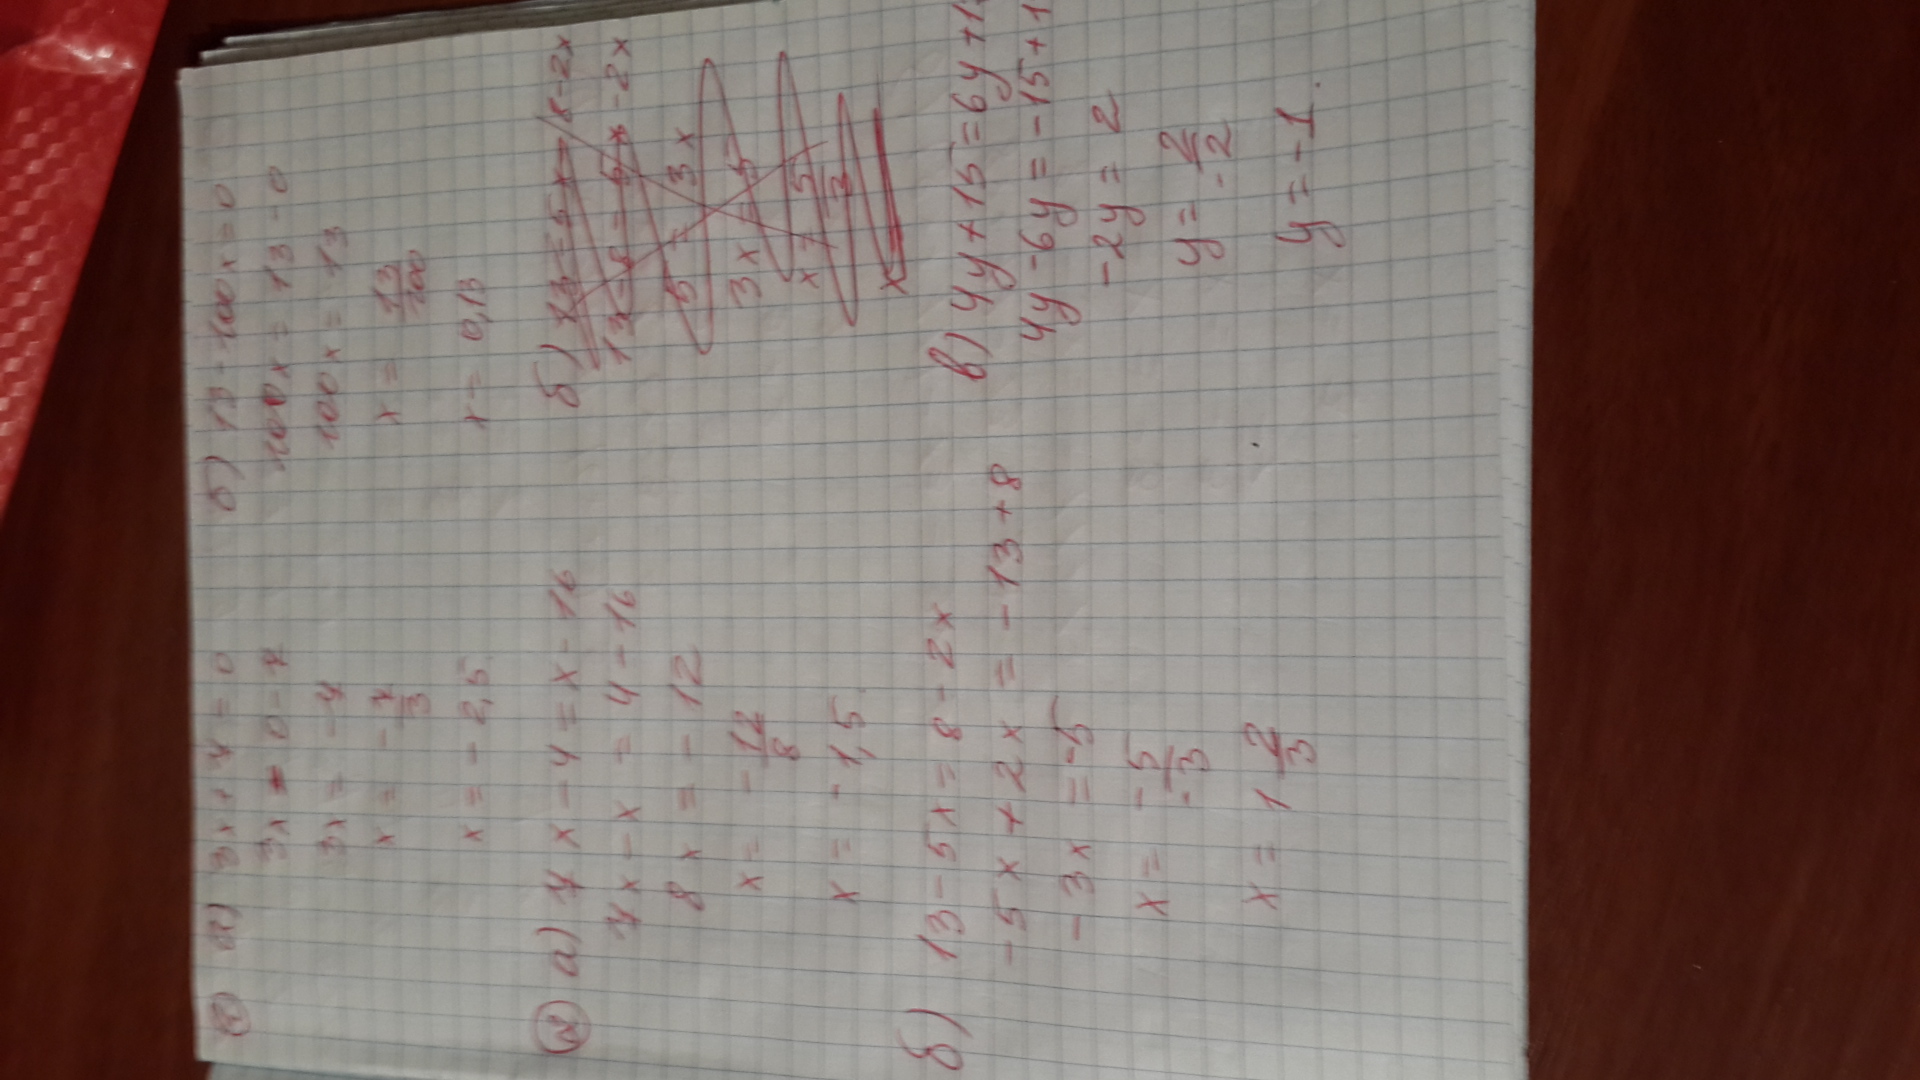 а) 3x + 7 = 0
3x = 0 - 7
3x = -7
x = -7/3
x = -2,5
б) 13 - 100x = 0
100x = 13 - 0
100x = 13
x = 13/100
x = 0,13
а) 7x - 4 = x - 16
7x - x = 4 - 16
8x = -12
x = -12/8
x = -1,5
б)
б) 13 - 5x = 8 - 2x
-5x + 2x = -13 + 8
-3x = -5
x = -5/-3
x = 1 2/3
в) 4y + 15 = 6y + 1
4y - 6y = -15 + 1
-2y = 2
y = 2/-2
y = -1.